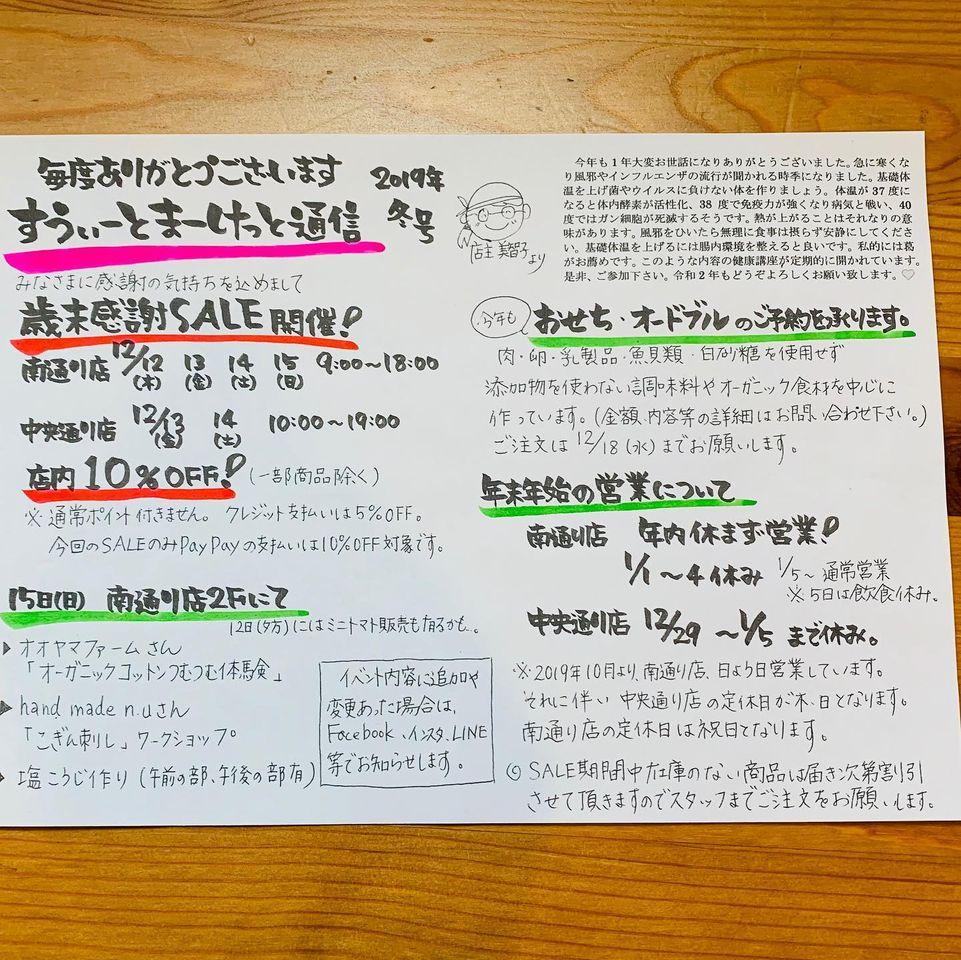 毎度ありがとうございます
すうぃーとまーけっと通信
2019年
冬号
店主 美智子より
今年も1年大変お世話になりありがとうございました。急に寒くな
り風邪やインフルエンザの流行が聞かれる時季になりました。基礎体
温を上げ菌やウイルスに負けない体を作りましょう。体温が37度に
なると体内酵素が活性化、38度で免疫力が強くなり病気と戦い、40
度ではガン細胞が死滅するそうです。熱が上がることはそれなりの意
味があります。風邪をひいたら無理に食事は摂らず安静にしてくださ
い。基礎体温を上げるには腸内環境を整えると良いです。私的には葛
がお薦めです。このような内容の健康講座が定期的に開かれています。
是非、ご参加下さい。令和2年もどうぞよろしくお願い致します。♡
みなさまに感謝の気持ちを込めまして
歳末感謝SALE開催!
南通り店 12/12(木) 13(金) 14(土) 15(日) 9:00~18:00
中央通り店 12/13(金) 14(土) 10:00~19:00
店内10%OFF! (一部商品除く)
※通常ポイント付きません。クレジット支払いは5%OFF。
今回のSALEのみPayPayの支払いは10%OFF対象です。
15日(日) 南通り店2Fにて
12日(夕方)にはミニトマト販売も有るかも。
▶オオヤマファームさん
「オーガニックコットンつむつむ体験」
▶hand made n.uさん
「こぎん刺し」ワークショップ
▶塩こうじ作り(午前の部、午後の部有)
イベント内容に追加や
変更あった場合は、
Facebook、インスタ、LINE
等でお知らせします。
今年も
おせち・オードブルのご予約を承ります。
肉・卵・乳製品・魚貝類・白砂糖を使用せず
添加物を使わない調味料やオーガニック食材を中心に
作っています。(金額、内容等の詳細はお問い合わせ下さい。)
ご注文は12/18(水)までお願いします。
年末年始の営業について
南通り店 年内休まず営業!
1/1~4休み 1/5~通常営業
※5日は飲食休み。
中央通り店 12/29~1/5まで休み。
※2019年10月より、南通り店、日よう日営業しています。
それに伴い中央通り店の定休日が木、日となります。
南通り店の定休日は祝日となります。
◎SALE期間中在庫のない商品は届き次第割引
させて頂きますのでスタッフまでご注文をお願いします。